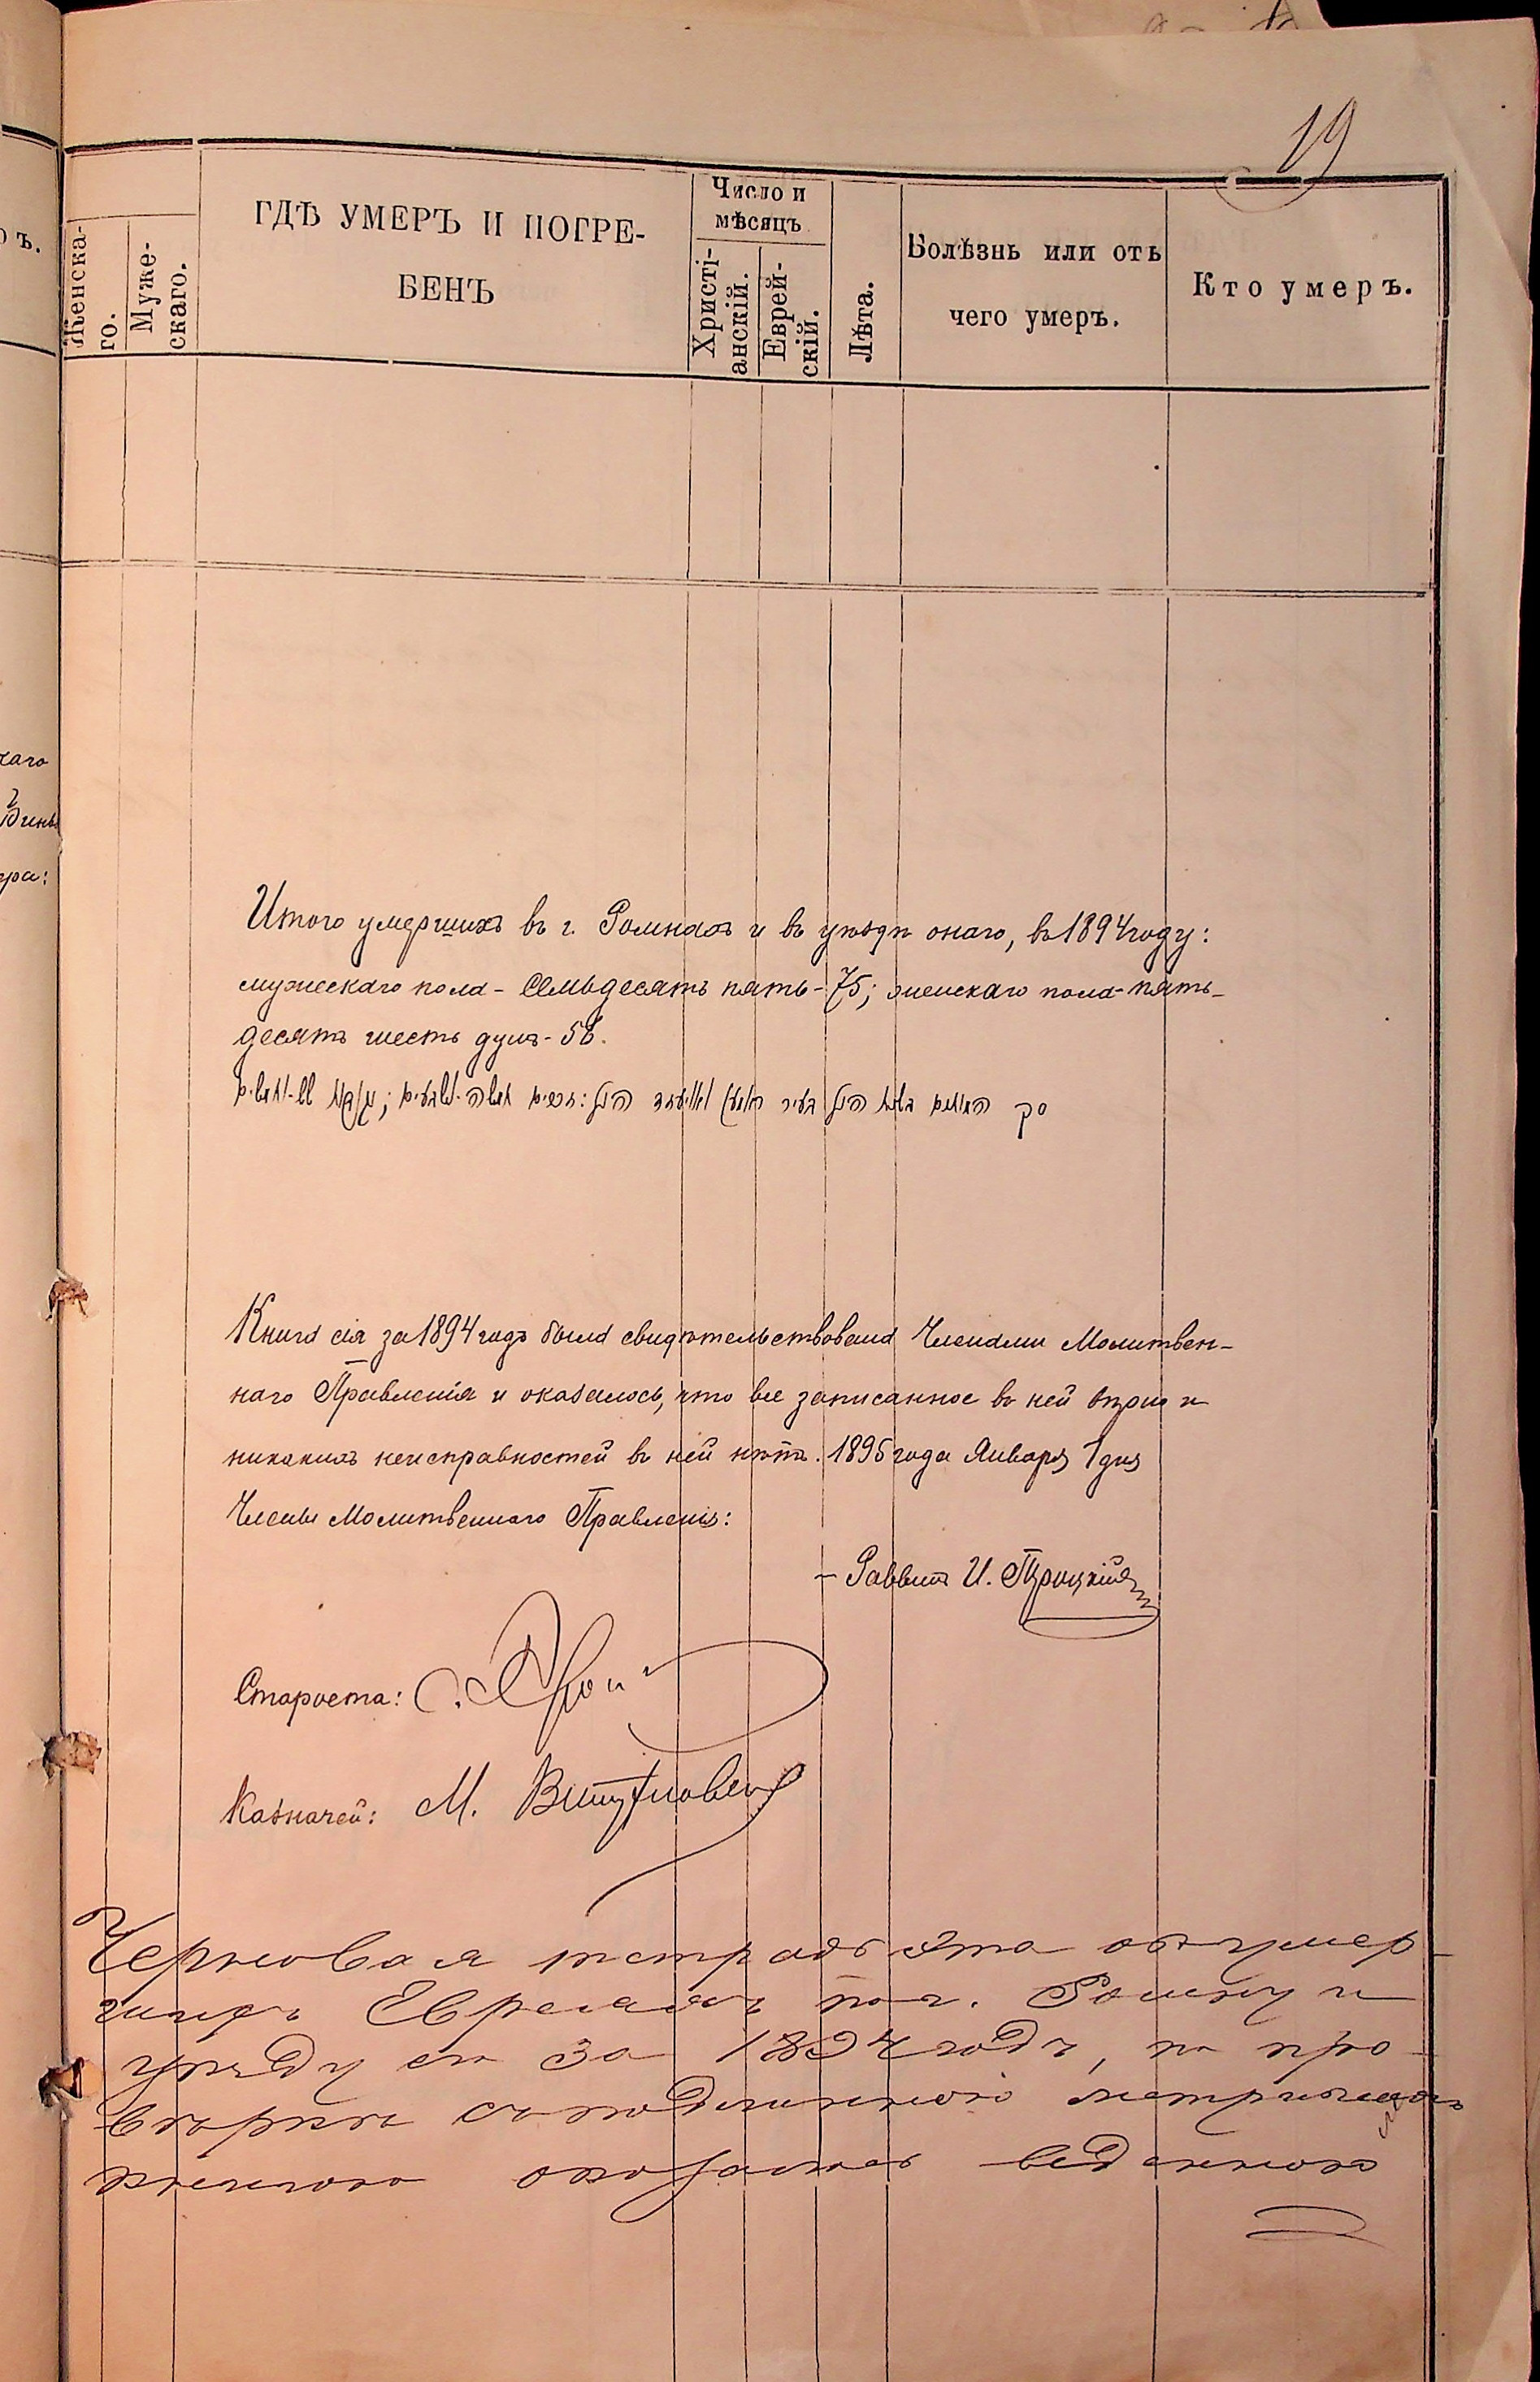 19
Женска-
го.
Муже-
скаго.
ГДѢ УМЕРЪ И ПОГРЕ-
БЕНЪ
Число и
мѣсяцъ
Христі-
анскій.
Еврей-
скій.
Лѣта.
Болѣзнь или отъ
чего умеръ.
Кто умеръ.
Итого умершихъ въ г. Ромнахъ и въ уѣздѣ онаго, въ 1894 году:
мужескаго пола - Семьдесятъ пять - 75; женскаго пола - пять-
десятъ шесть душъ - 56.
סך
Книга сія за 1894 годъ была свидѣтельствована Членами Молитвен-
наго Правленія и оказалось, что все записанное въ ней вѣрно и
никакихъ неисправностей въ ней нѣтъ. 1895 года Января 1 дня
Члены Молитвеннаго Правленія:
- Раввинъ И. Троцкій
Староста:
Казначей: М.
Черновая тетрадь эта объ умер-
шихъ Евреяхъ по г. Ромну и
уѣзду его за 1894 годъ, по про-
вѣркѣ съ подлинною метрическою
книгою оказалась веденною